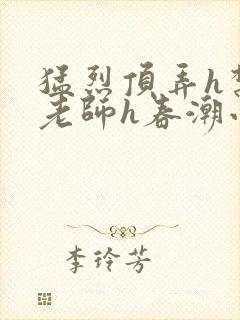 猛烈頂弄h
老師h春潮
李玲芳